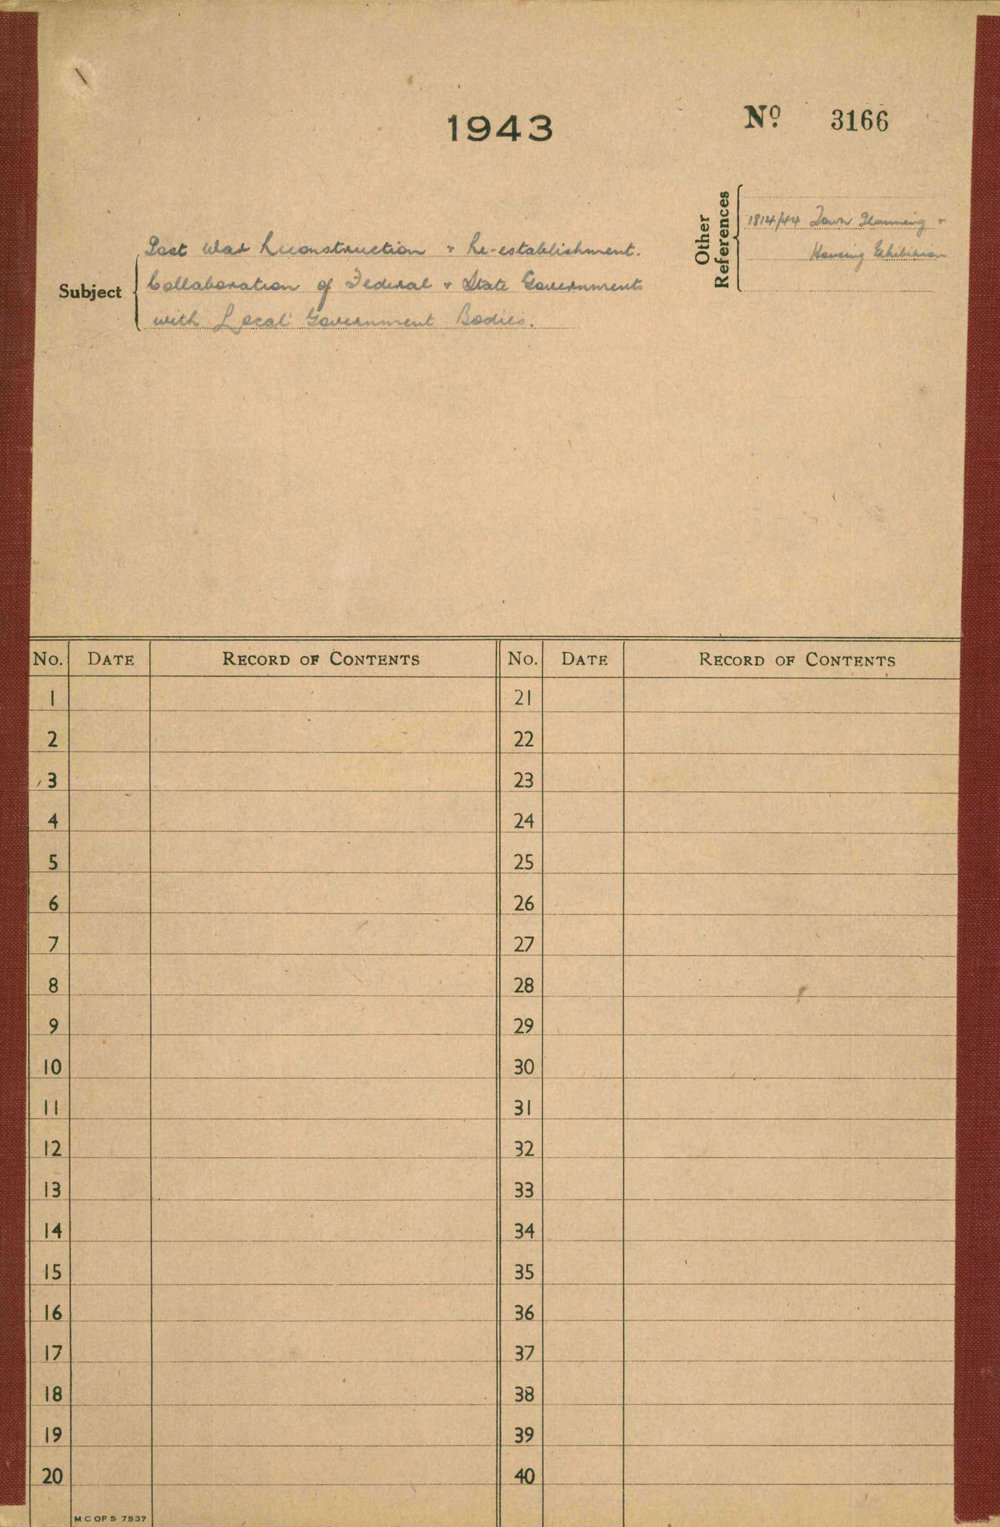 1943
Nº 3166
Other References
1814/44 Town Planning &
Housing Exhibition
Subject
Post War Reconstruction & Re-establishment.
Collaboration of Federal & State Governments
with Local Government Bodies.
No. DATE RECORD OF CONTENTS No. DATE RECORD OF CONTENTS
1 21
2 22
3 23
4 24
5 25
6 26
7 27
8 28
9 29
10 30
11 31
12 32
13 33
14 34
15 35
16 36
17 37
18 38
19 39
20 40
M C OF S 7837